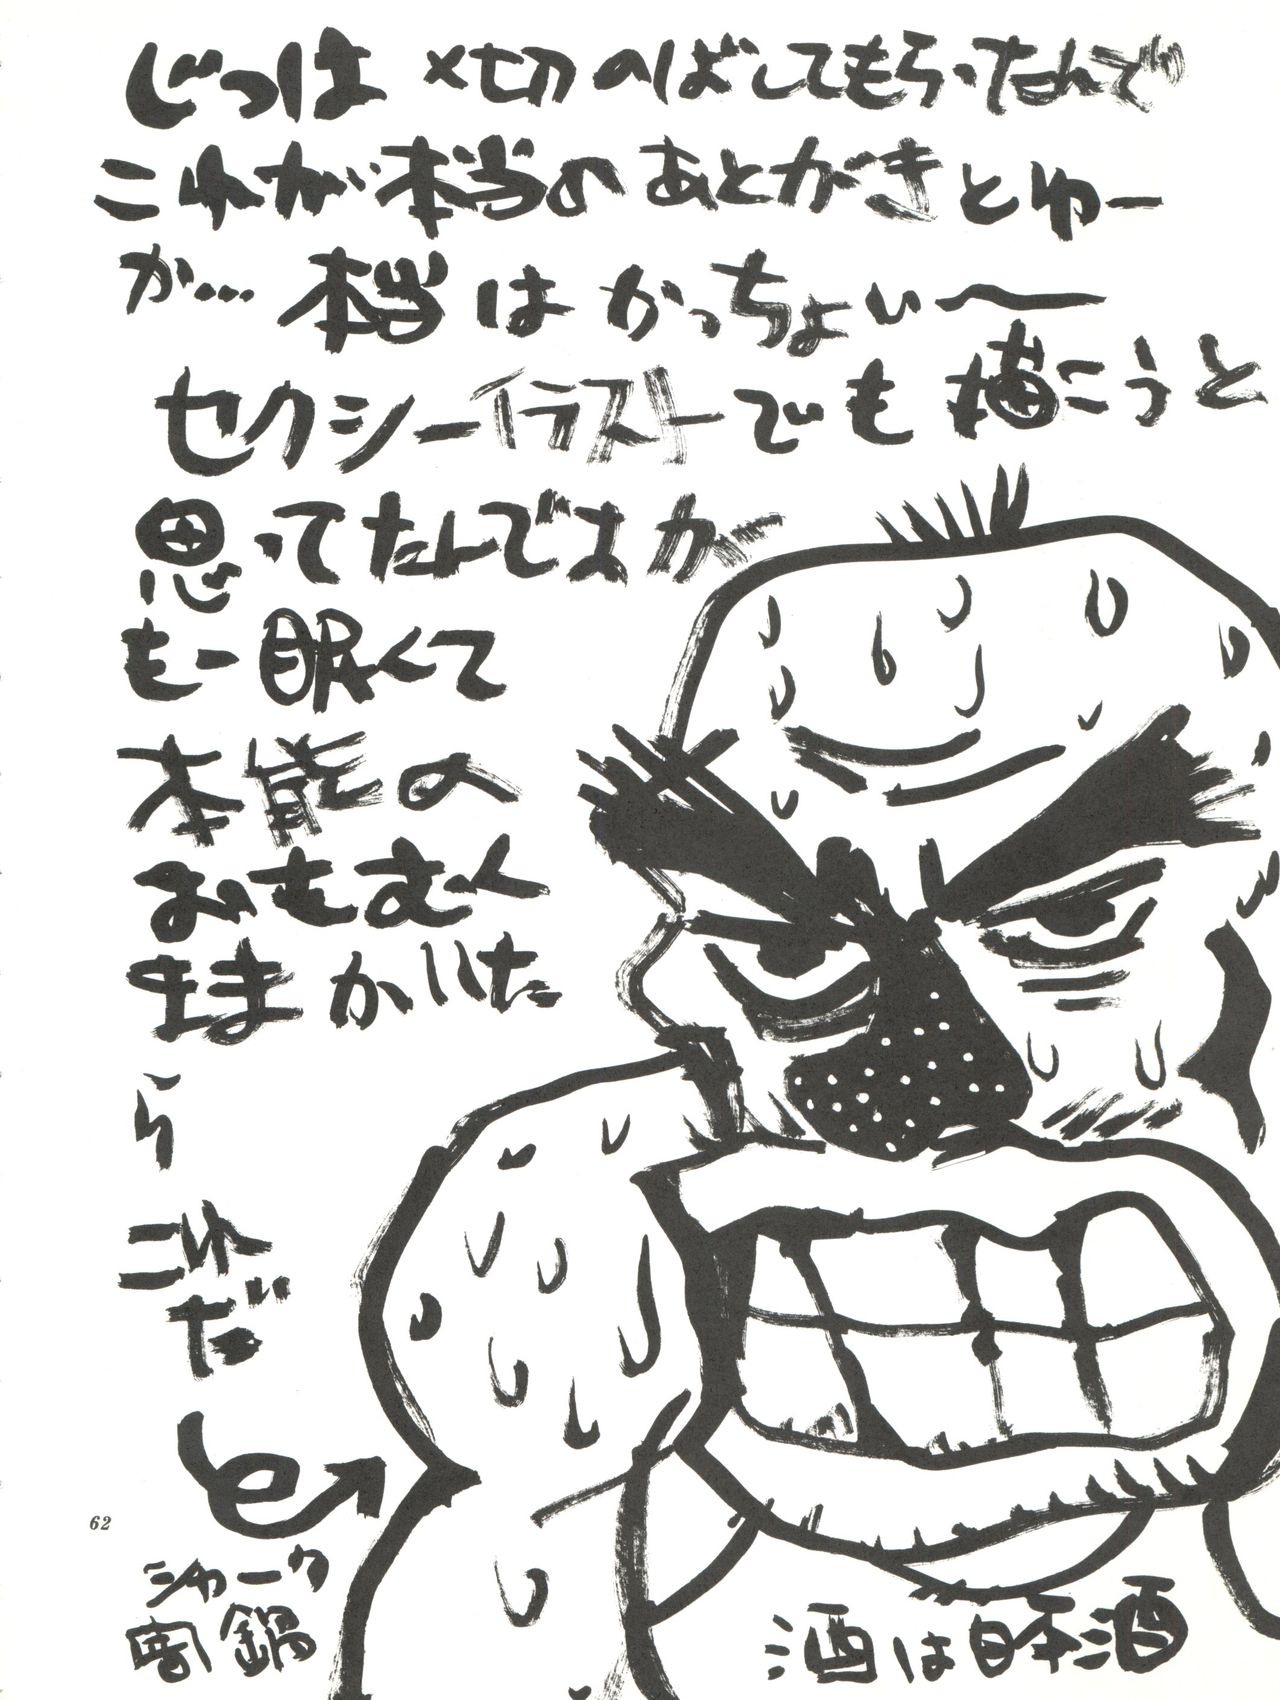 じつは〆切のばしてもらったんで
これが本当のあとがきとゆー
か…本当はかっちょいい〜
セクシーイラストでも描こうと
思ってたんですが
もー眠くて
本能の
おもむく
ままかいた
ら
これ
だ
シャーク
鍋
酒は日本酒
62